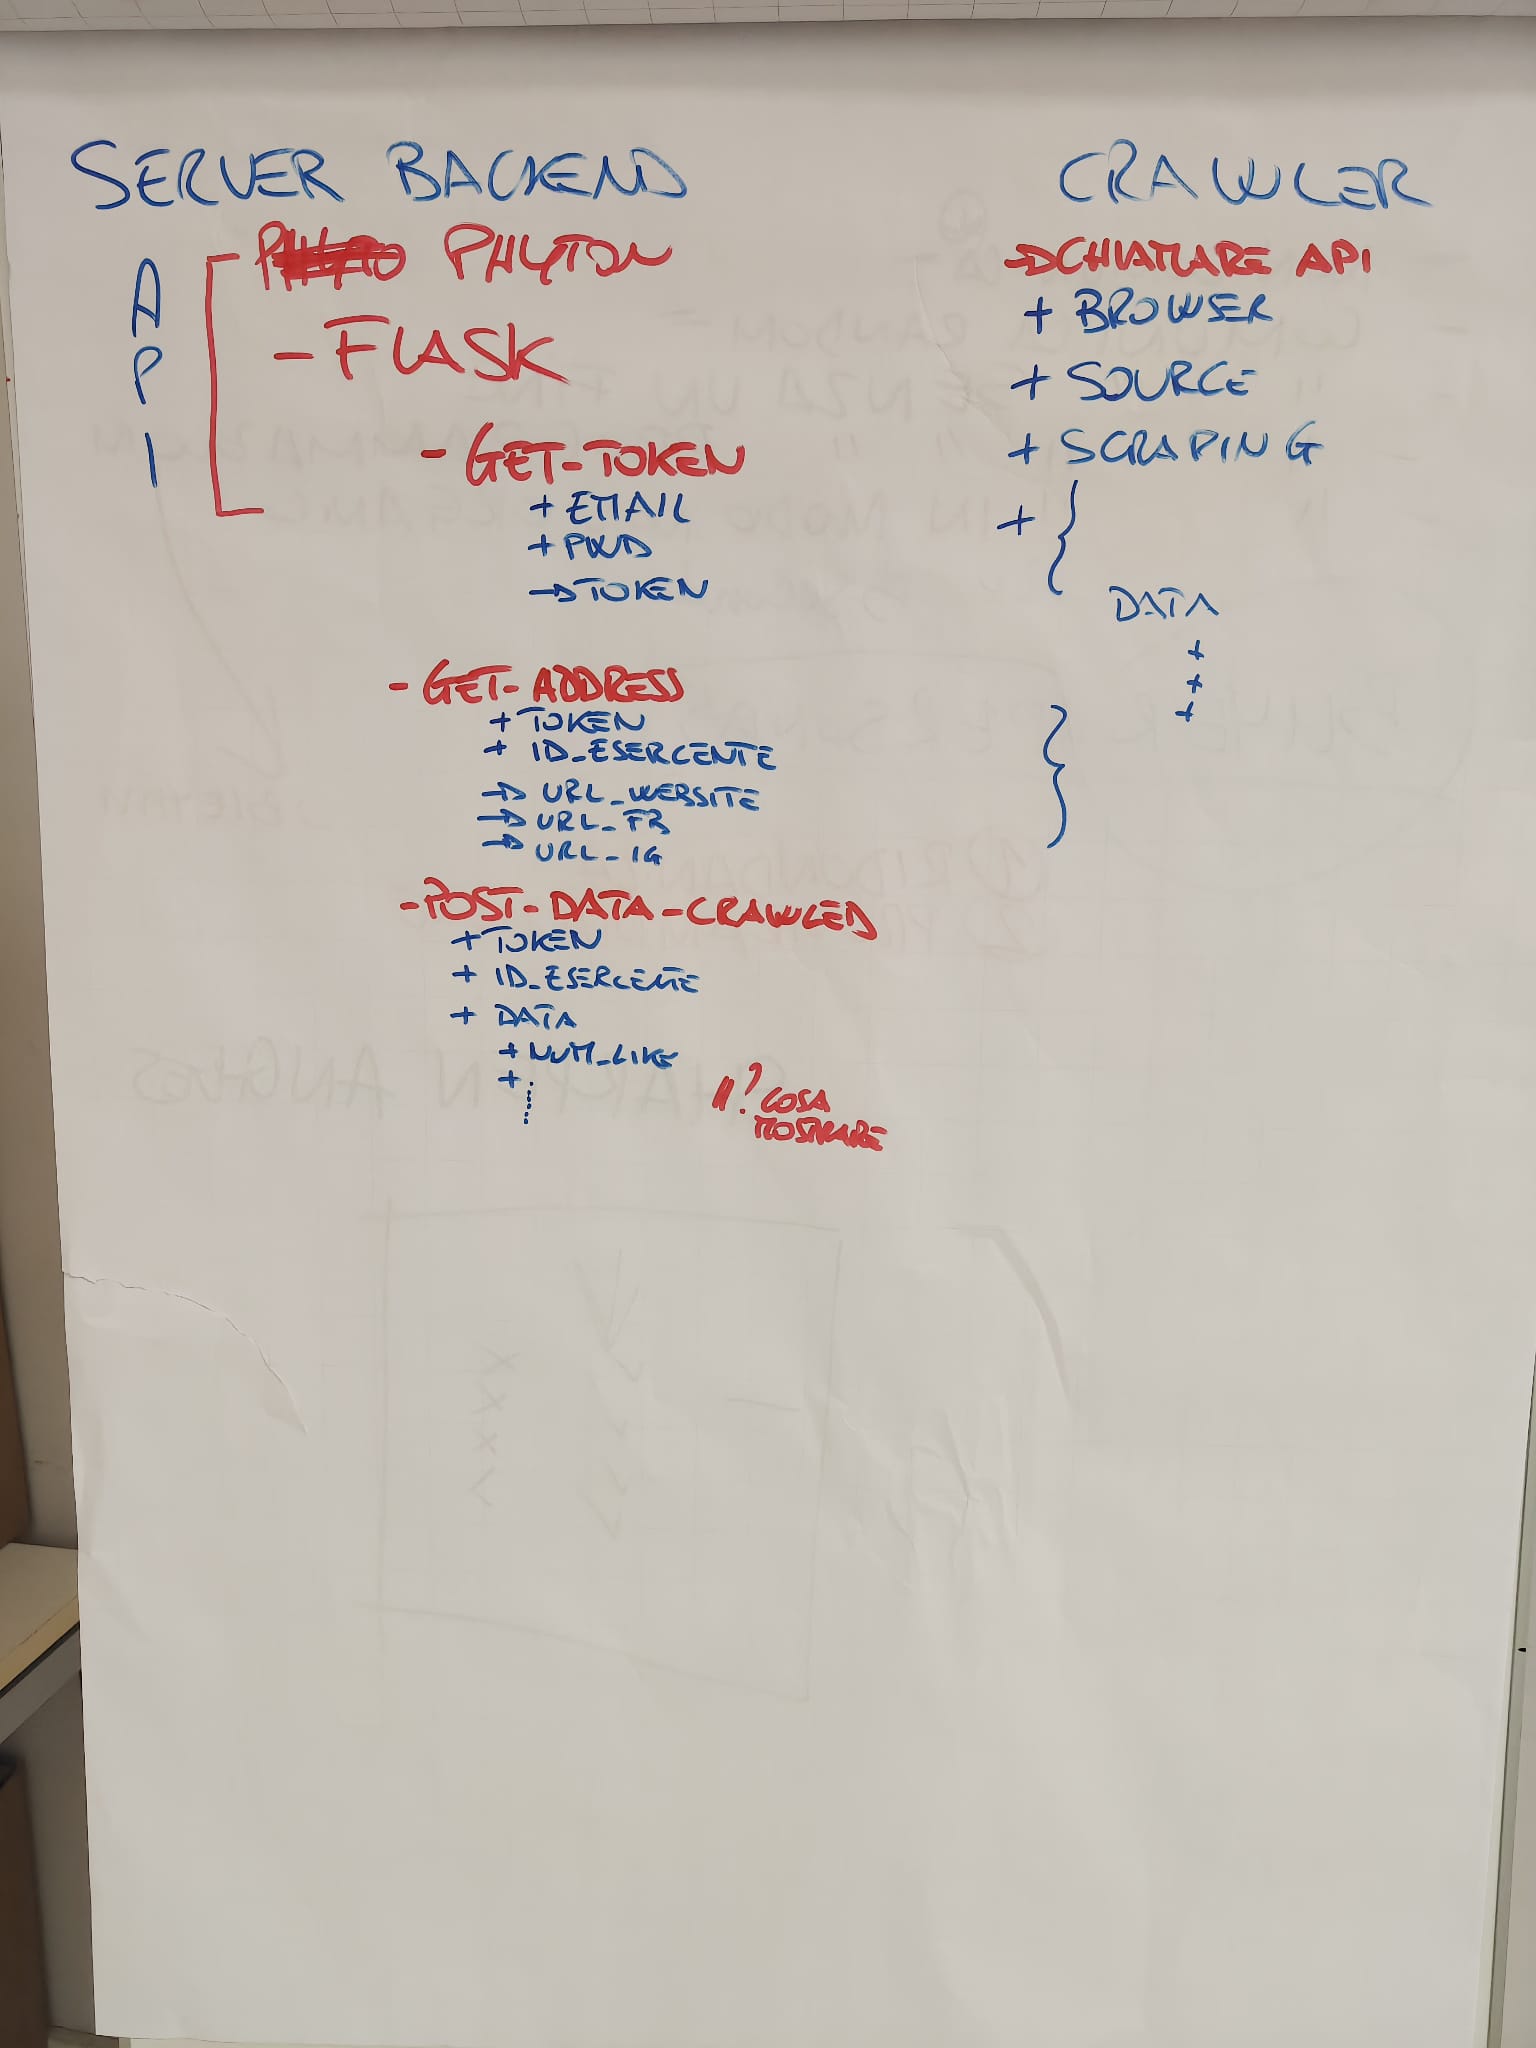 SERVER BACKEND
API
PHYTON
- FLASK
- GET-TOKEN
+ EMAIL
+ PWD
→ TOKEN
- GET-ADDRESS
+ TOKEN
+ ID_ESERCENTE
→ URL_WEBSITE
→ URL_FB
→ URL_IG
- POST-DATA-CRAWLED
+ TOKEN
+ ID_ESERCENTE
+ DATA
+ NUM_LIKE
+
!! ? COSA
MOSTRARE
CRAWLER
→ CHIAMARE API
+ BROWSER
+ SOURCE
+ SCRAPING
+ {
DATA
+
+
+
}